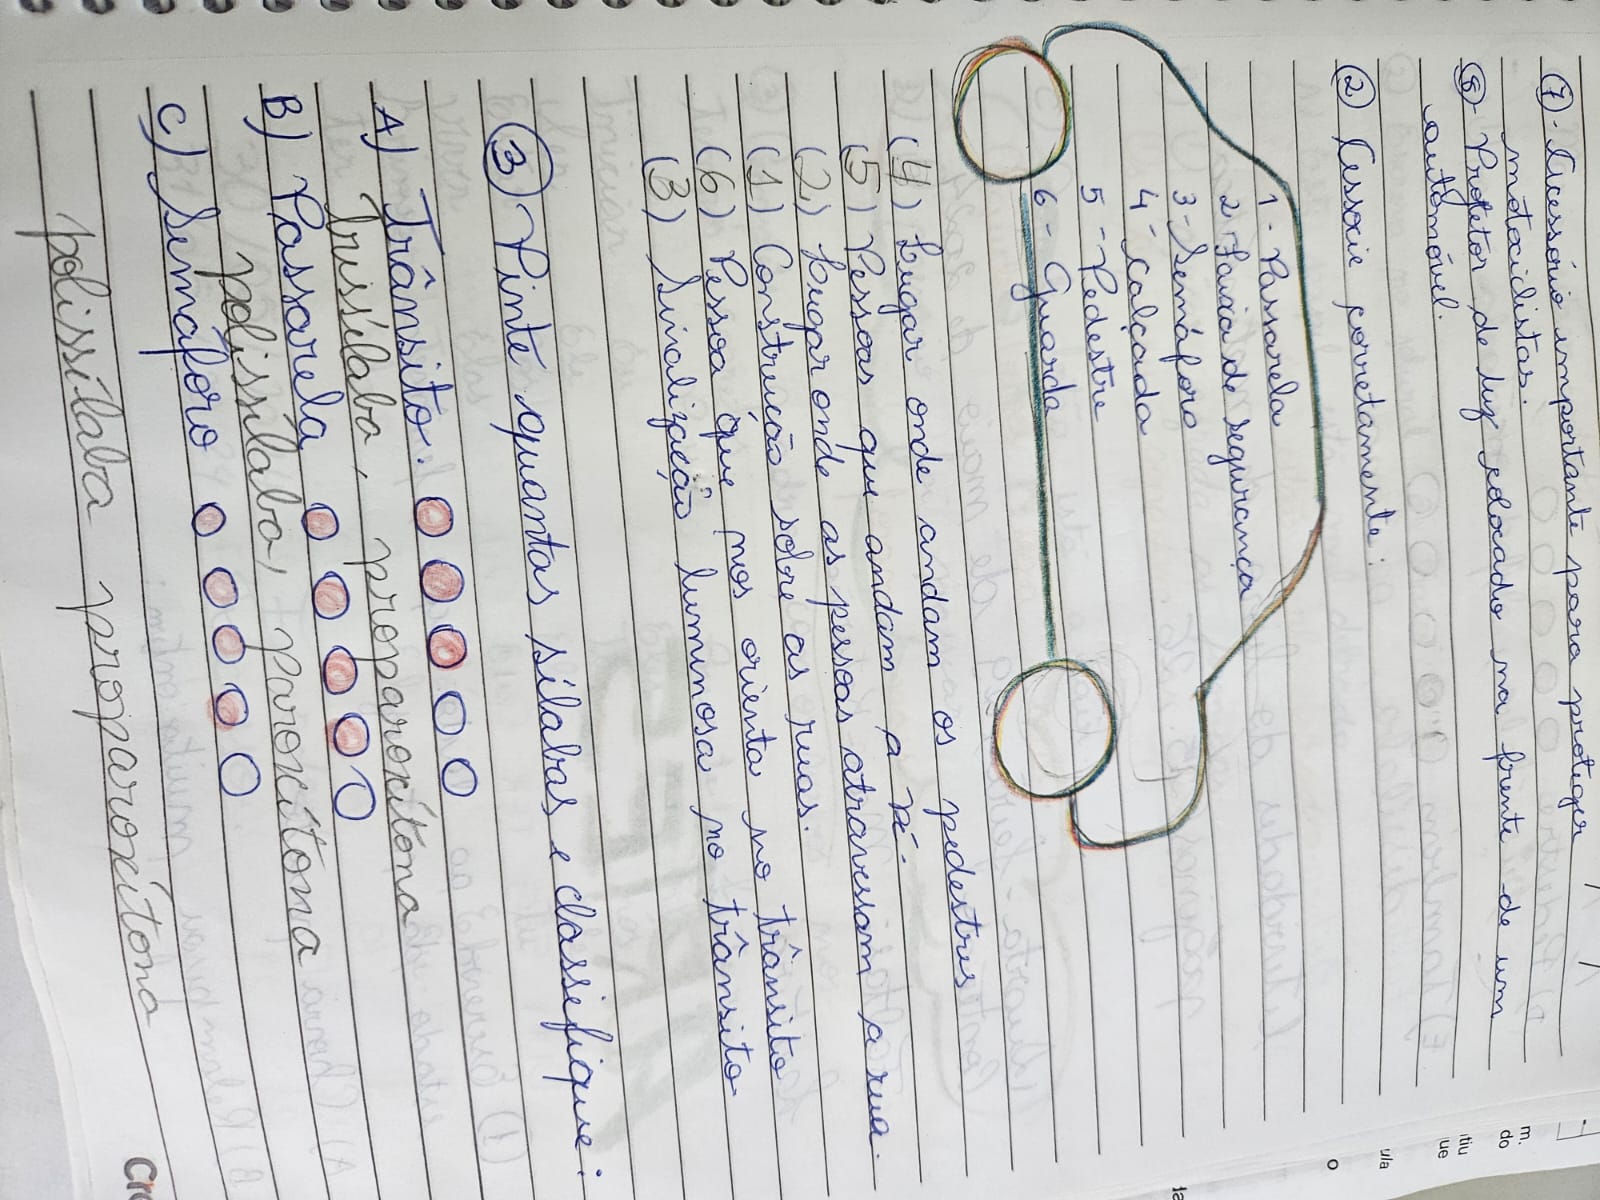 7- Acessório importante para proteger
motociclistas.
8- Protetor de luz colocado na frente de um
automóvel.
2 Associe corretamente:
1- Passarela
2- Faixa de segurança
3- Semáforo
4- Calçada
5- Pedestre
6- Guarda
(4) Lugar onde andam os pedestres
(5) Pessoas que andam a pé.
(2) Lugar onde as pessoas atravessam a rua.
(1) Construção sobre as ruas.
(6) Pessoa que nos orienta no trânsito
(3) Sinalização luminosa no trânsito
3 Pinte quantas sílabas e classefique:
A) Trânsito.
Trissílaba, proparoxítona
B) Passarela
polissílaba, paroxítona
C) Semáforo
polissílaba proparoxítona